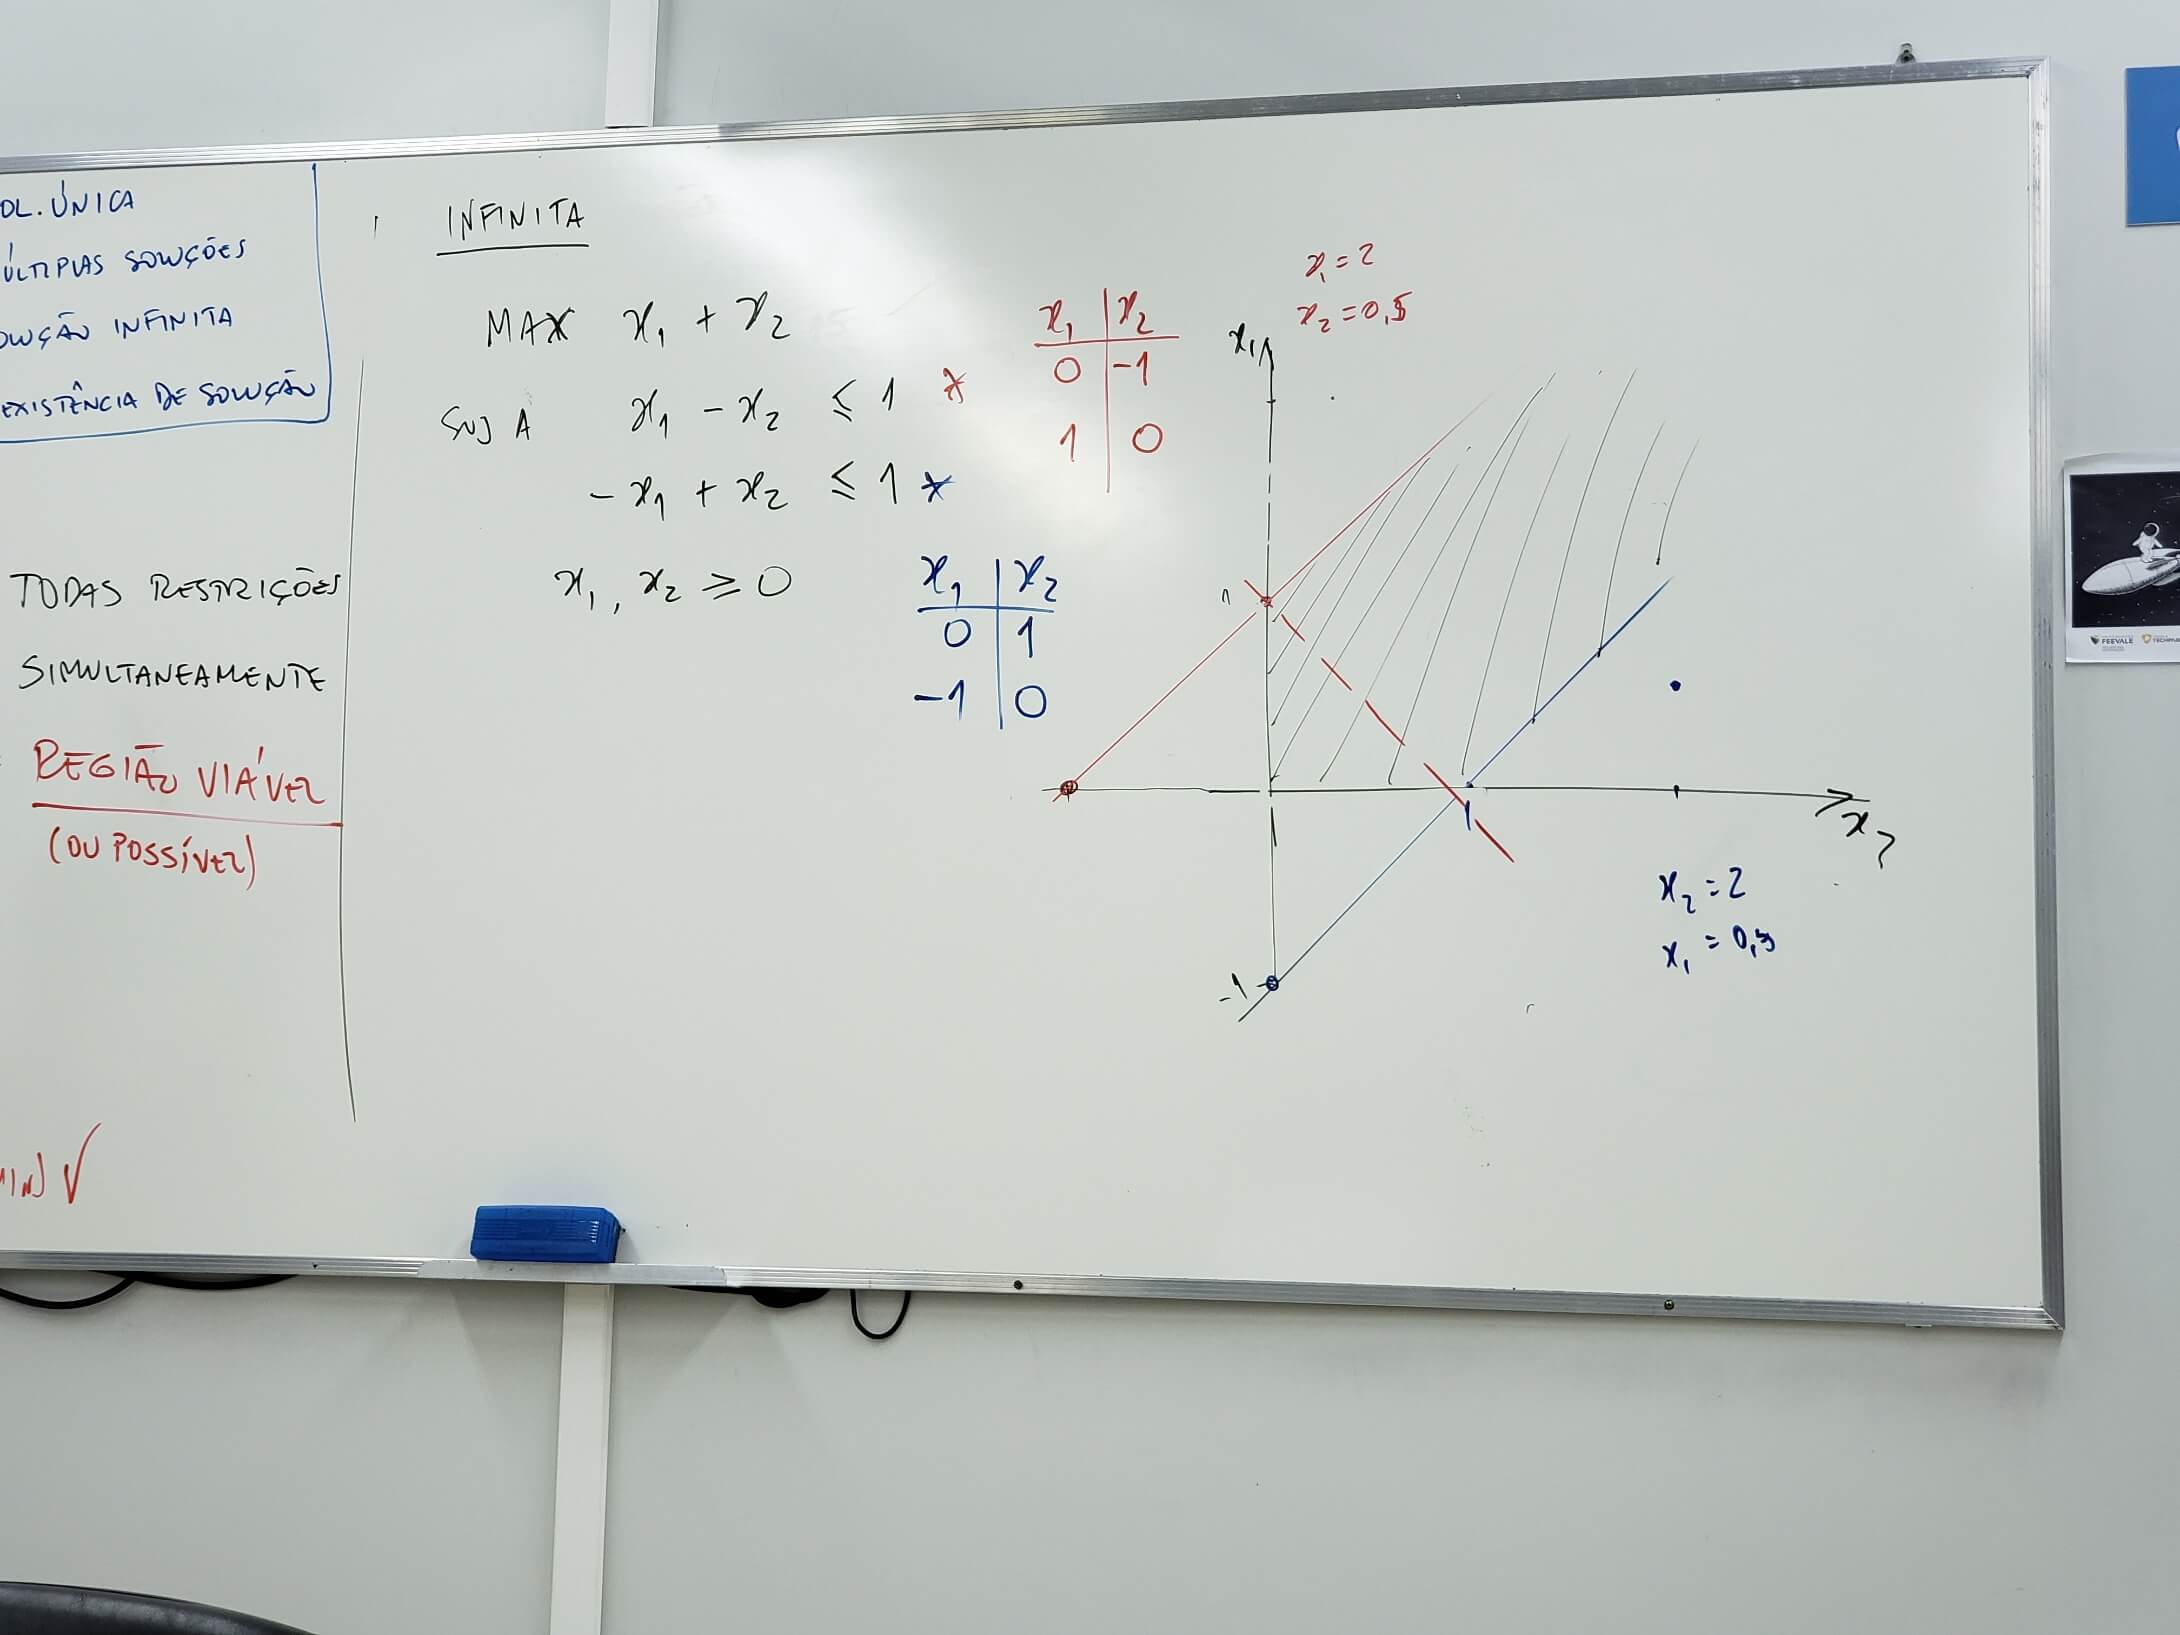 OL. ÚNICA
ÚLTIPLAS SOLUÇÕES
OLUÇÃO INFINITA
EXISTÊNCIA DE SOLUÇÃO
TODAS RESTRIÇÕES
SIMULTANEAMENTE
REGIÃO VIÁVEL
(OU POSSÍVEL)
MIN) √
INFINITA
MAX x₁ + x₂
SUJ A x₁ - x₂ ≤ 1 *
-x₁ + x₂ ≤ 1 *
x₁, x₂ ≥ 0
x₁ | x₂
0 | -1
1 | 0
x₁ | x₂
0 | 1
-1 | 0
x₁ = 2
x₂ = 0,5
x₁
1
1
x₂
-1
x₂ = 2
x₁ = 0,5
FEEVALE